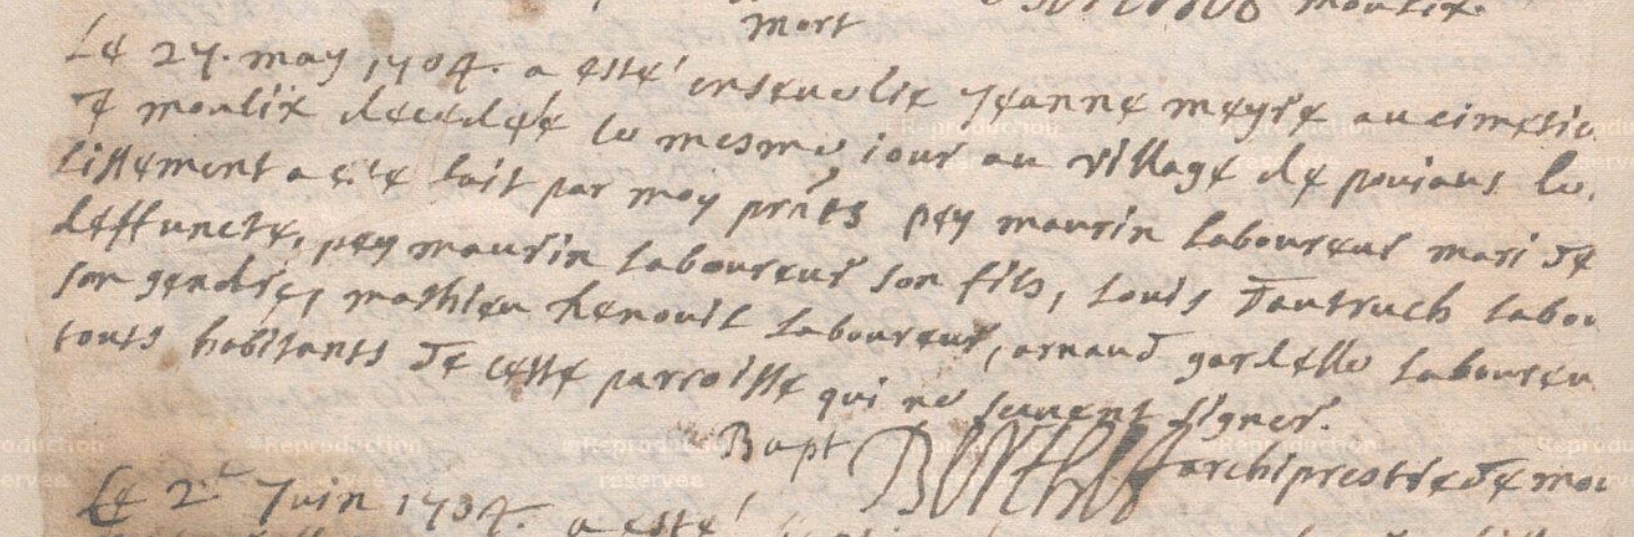 moulix.
mort
Le 27. may 1704. a esté enseuelie Jeanne meyre au cimetie
de moulix decedée le mesme iour au village de poujaus le
lissement a esté fait par moy prnts pey maurin laboureur mari de
deffuncte, pey maurin laboureur son fils, louis dautruch labou
son gendre, mathieu henouil laboureur, arnaud gardelle laboureu
touts habitants de ceste parroisse qui ne seuuent signer.
Bapt archiprestre de mou
Le 2 Juin 1704. a esté